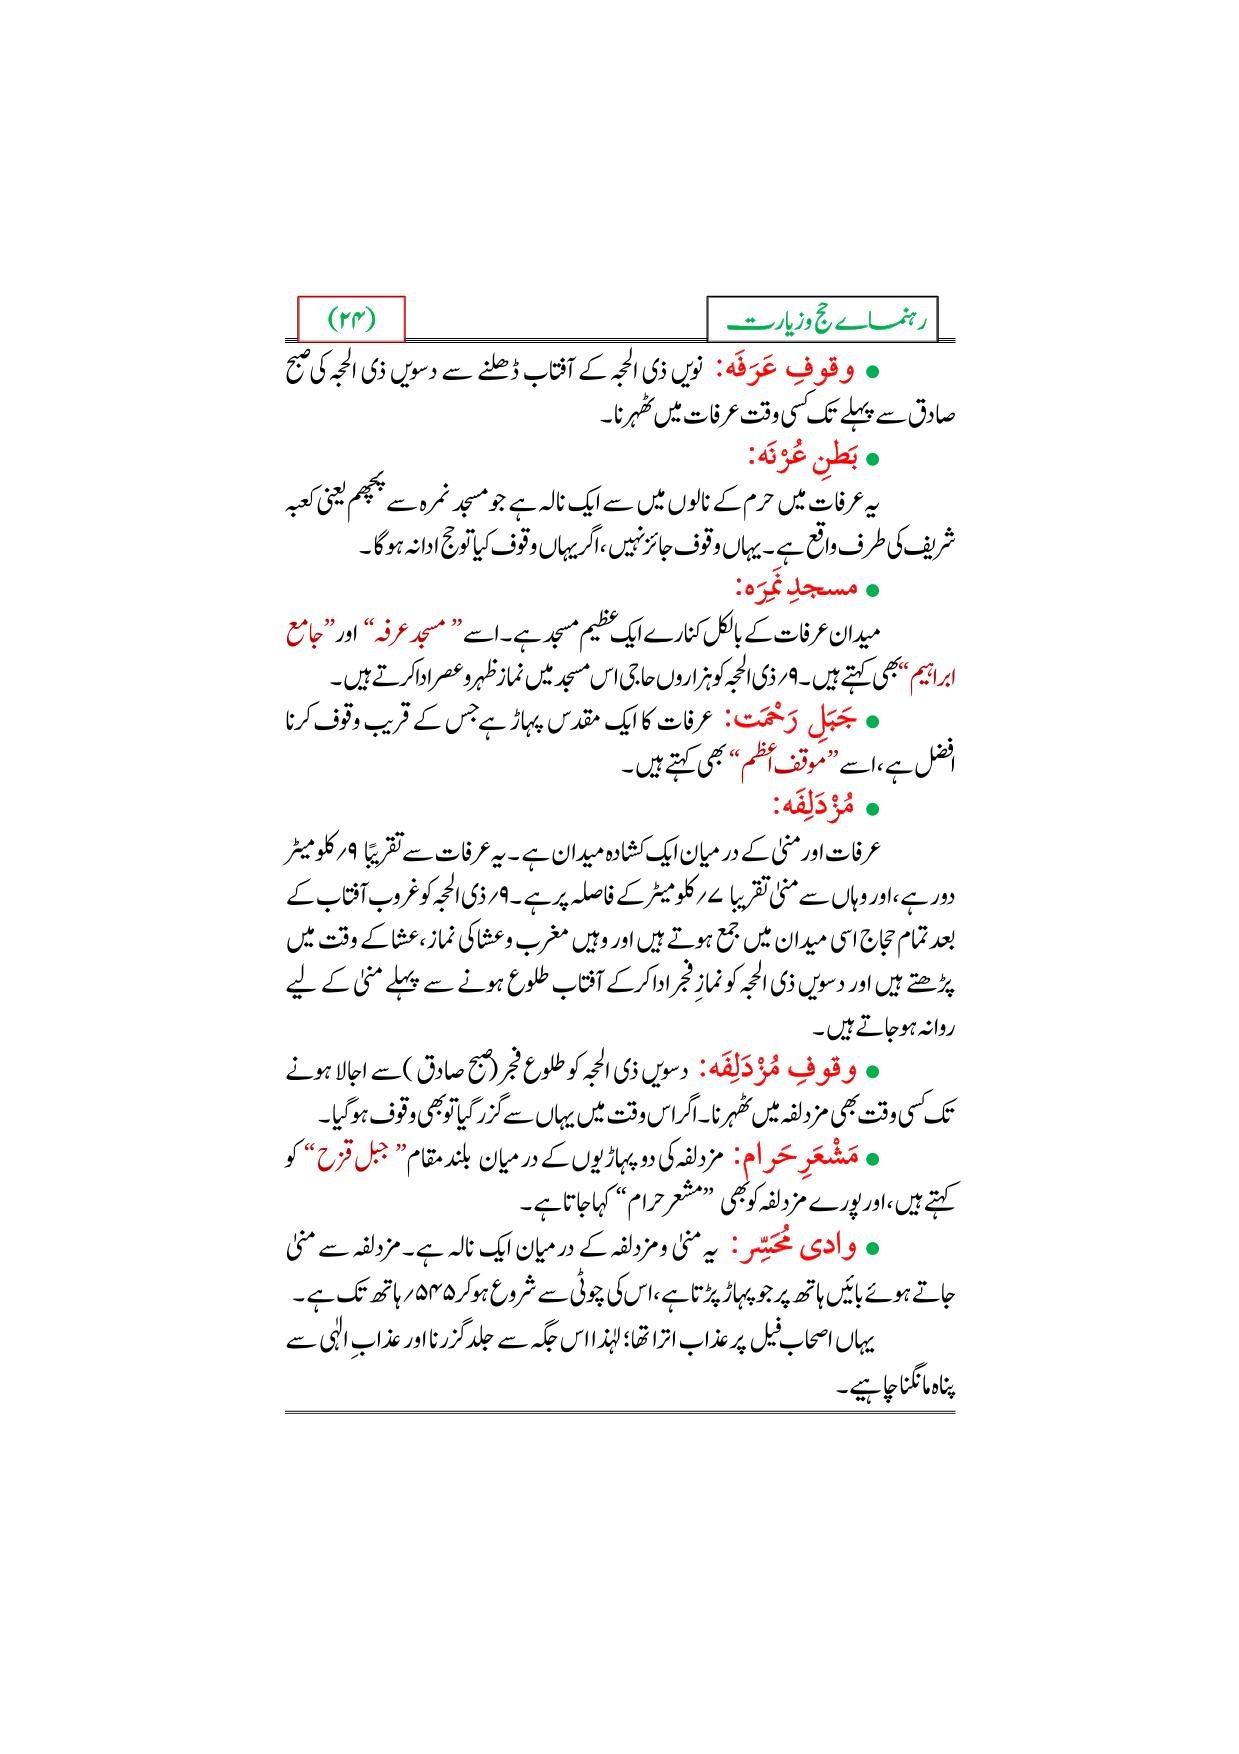 رہنمائے حج و زیارت
(۲۴)
● وقوفِ عَرَفَه: نویں ذی الحجہ کے آفتاب ڈھلنے سے دسویں ذی الحجہ کی صبح
صادق سے پہلے تک کسی وقت عرفات میں ٹھہرنا۔
● بَطنِ عُرْنَه:
یہ عرفات میں حرم کے نالوں میں سے ایک نالہ ہے جو مسجد نمرہ سے پچھم یعنی کعبہ
شریف کی طرف واقع ہے۔ یہاں وقوف جائز نہیں، اگر یہاں وقوف کیا تو حج ادا نہ ہوگا۔
● مسجدِ نَمِرَہ:
میدان عرفات کے بالکل کنارے ایک عظیم مسجد ہے۔ اسے ”مسجد عرفہ“ اور ”جامع
ابراہیم“ بھی کہتے ہیں۔ ۹؍ ذی الحجہ کو ہزاروں حاجی اس مسجد میں نماز ظہر و عصر ادا کرتے ہیں۔
● جَبَلِ رَحْمَت: عرفات کا ایک مقدس پہاڑ ہے جس کے قریب وقوف کرنا
افضل ہے، اسے ”موقف اعظم“ بھی کہتے ہیں۔
● مُزْدَلِفَه:
عرفات اور منیٰ کے درمیان ایک کشادہ میدان ہے۔ یہ عرفات سے تقریبًا ۹؍ کلومیٹر
دور ہے، اور وہاں سے منیٰ تقریبا ۷؍ کلومیٹر کے فاصلہ پر ہے۔ ۹؍ ذی الحجہ کو غروب آفتاب کے
بعد تمام حجاج اسی میدان میں جمع ہوتے ہیں اور وہیں مغرب و عشا کی نماز، عشا کے وقت میں
پڑھتے ہیں اور دسویں ذی الحجہ کو نمازِ فجر ادا کر کے آفتاب طلوع ہونے سے پہلے منیٰ کے لیے
روانہ ہو جاتے ہیں۔
● وقوفِ مُزْدَلِفَه: دسویں ذی الحجہ کو طلوع فجر (صبح صادق) سے اجالا ہونے
تک کسی وقت بھی مزدلفہ میں ٹھہرنا۔ اگر اس وقت میں یہاں سے گزر گیا تو بھی وقوف ہو گیا۔
● مَشْعَرِ حَرام: مزدلفہ کی دو پہاڑیوں کے درمیان بلند مقام ”جبل قزح“ کو
کہتے ہیں، اور پورے مزدلفہ کو بھی ”مشعر حرام“ کہا جاتا ہے۔
● وادی مُحَسِّر: یہ منیٰ و مزدلفہ کے درمیان ایک نالہ ہے۔ مزدلفہ سے منیٰ
جاتے ہوئے بائیں ہاتھ پر جو پہاڑ پڑتا ہے، اس کی چوٹی سے شروع ہو کر ۵۴۵؍ ہاتھ تک ہے۔
یہاں اصحاب فیل پر عذاب اترا تھا؛ لہٰذا اس جگہ سے جلد گزرنا اور عذابِ الٰہی سے
پناہ مانگنا چاہیے۔